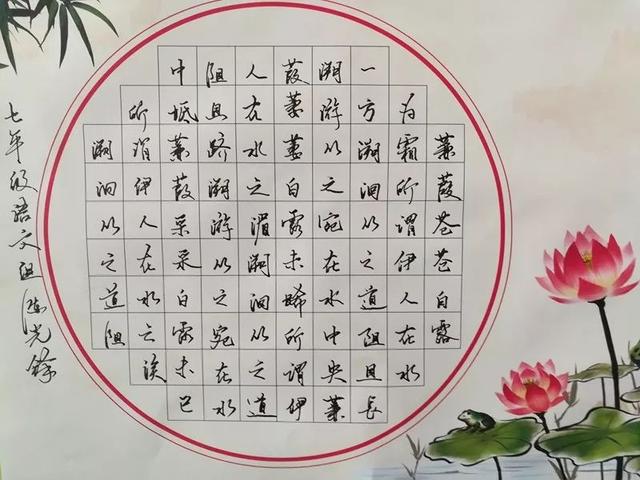 蒹葭苍苍白露
为霜所谓伊人在水
一方溯洄从之道阻且长
溯游从之宛在水中央蒹
葭萋萋白露未晞所谓伊
人在水之湄溯洄从之道
阻且跻溯游从之宛在水
中坻蒹葭采采白露未已
所谓伊人在水之涘
溯洄从之道阻
七年级语文组